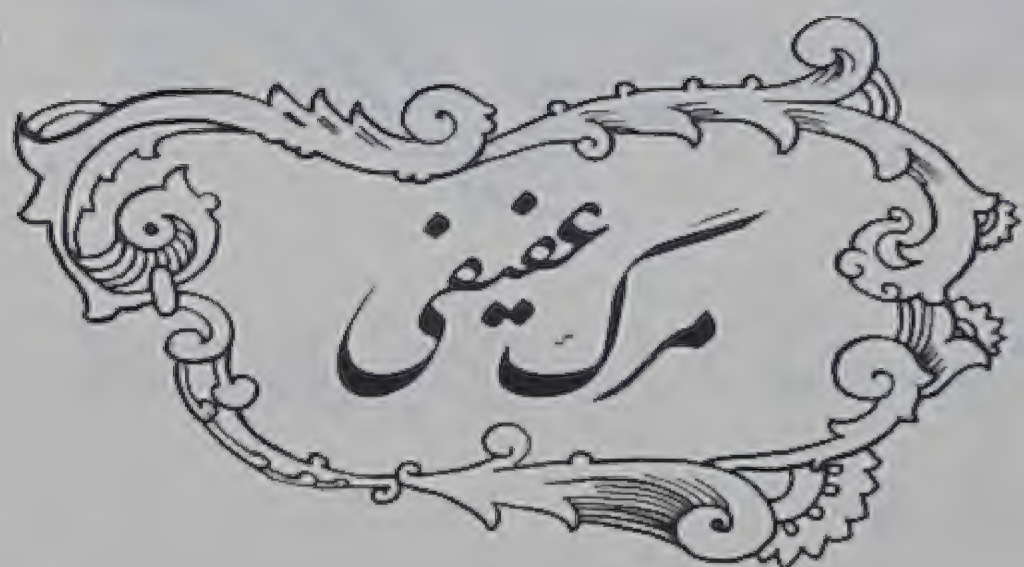 مرگ عفیفی